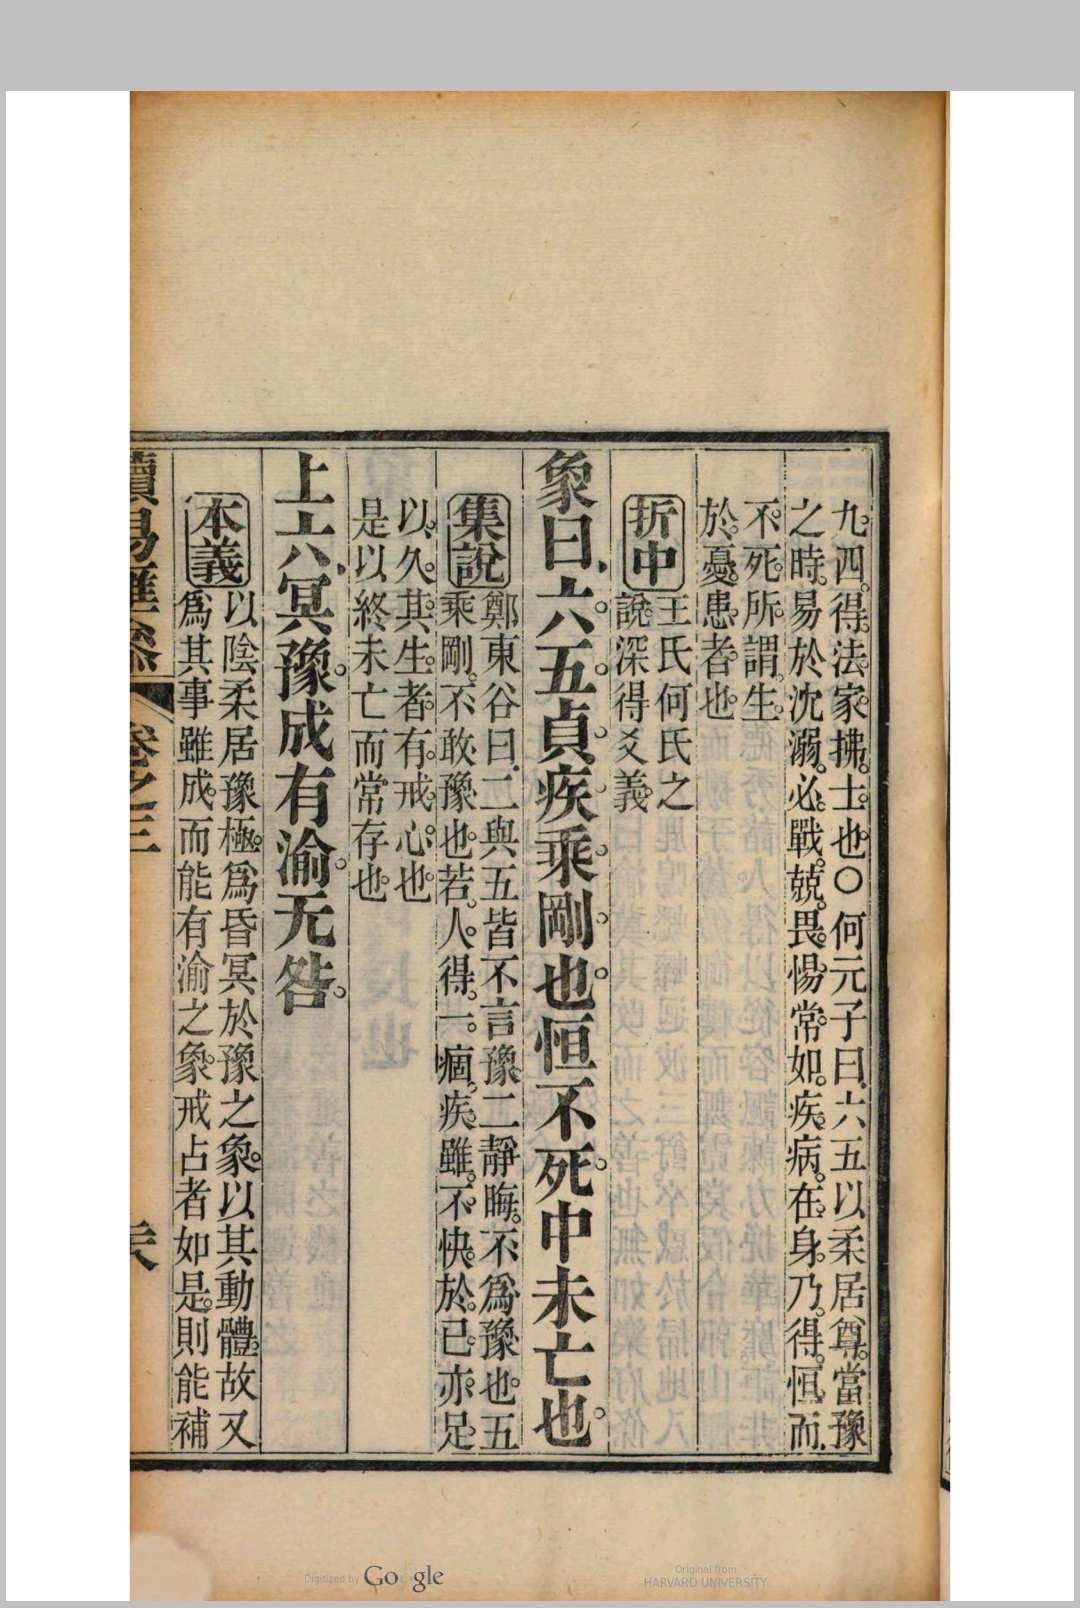 九四得法家拂士也○何元子曰六五以柔居尊當豫
之時易於沈溺必戰兢畏惕常如疾病在身乃得恒而
不死所謂生
於憂患者也
折中
王氏何氏之
說深得爻義
象曰六五貞疾乘剛也恒不死中未亡也
集說
鄭東谷曰二與五皆不言豫二靜晦不爲豫也五
乘剛不敢豫也若人得一痼疾雖不快於己亦足
以久其生者有戒心也
是以終未亡而常存也
上六冥豫成有渝无咎
本義
以陰柔居豫極爲昏冥於豫之象以其動體故又
爲其事雖成而能有渝之象戒占者如是則能補
卷之三
Digitized by Google
Original from
HARVARD UNIVERSITY